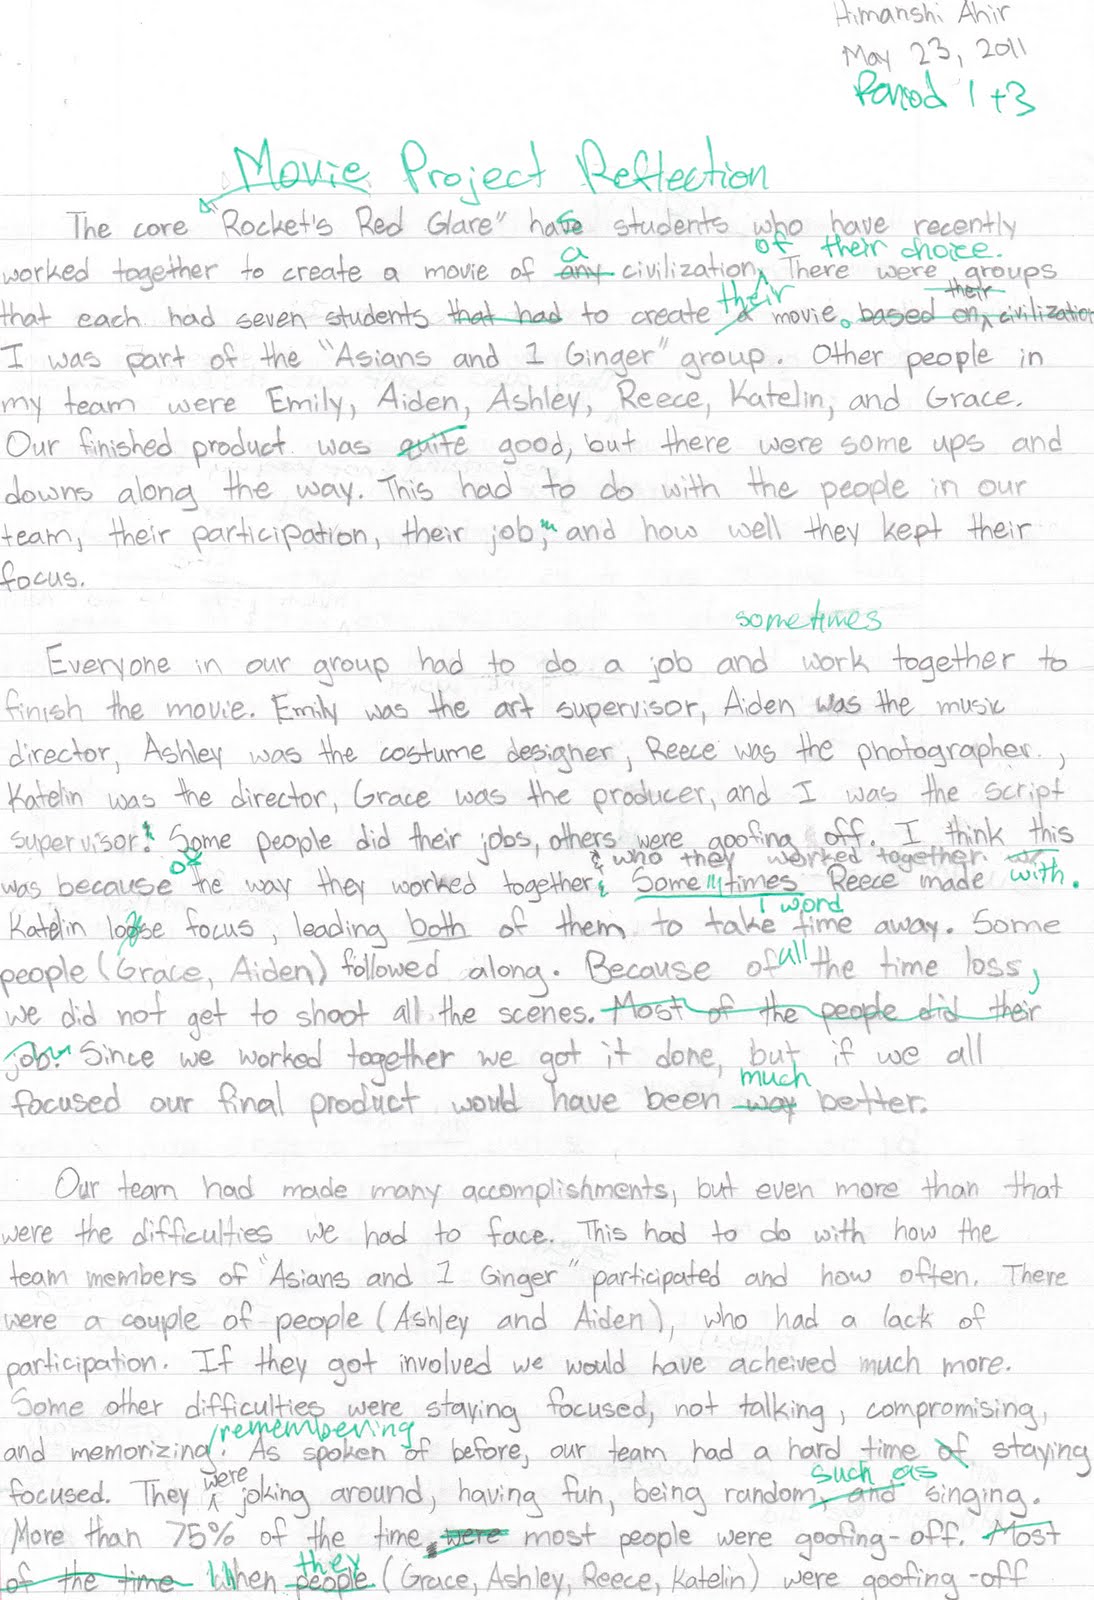 Himanshi Ahir
May 23, 2011
Period 1+3
Movie Project Reflection
The core "Rocket's Red Glare" has students who have recently
of their choice.
a
worked together to create a movie of any civilization. There were groups
their their
that each had seven students that had to create a movie. based on civilization
I was part of the "Asians and 1 Ginger" group. Other people in
my team were Emily, Aiden, Ashley, Reece, Katelin, and Grace.
Our finished product was quite good, but there were some ups and
downs along the way. This had to do with the people in our
team, their participation, their job, and how well they kept their
focus.
sometimes
Everyone in our group had to do a job and work together to
finish the movie. Emily was the art supervisor, Aiden was the music
director, Ashley was the costume designer, Reece was the photographer,
Katelin was the director, Grace was the producer, and I was the script
supervisor. Some people did their jobs, others were goofing off. I think this
& who they worked together
of
was because the way they worked together Sometimes Reece made with.
1 word
Katelin loose focus, leading both of them to take time away. Some
people (Grace, Aiden) followed along. Because of all the time loss,
we did not get to shoot all the scenes. Most of the people did their
job. Since we worked together we got it done, but if we all
much
focused our final product would have been way better.
Our team had made many accomplishments, but even more than that
were the difficulties we had to face. This had to do with how the
team members of "Asians and 1 Ginger" participated and how often. There
were a couple of people (Ashley and Aiden), who had a lack of
participation. If they got involved we would have acheived much more.
Some other difficulties were staying focused, not talking, compromising,
/remembering
and memorizing. As spoken of before, our team had a hard time of staying
were such as
focused. They joking around, having fun, being random, and singing.
More than 75% of the time, were most people were goofing-off. Most
they
of the time When people (Grace, Ashley, Reece, Katelin) were goofing-off